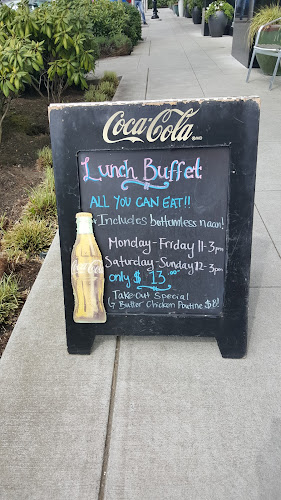 Coca-Cola
Lunch Buffet
ALL YOU CAN EAT!!
Includes bottomless naan!
Monday-Friday 11-3pm
Saturday-Sunday 12-3pm
only $13.00
Take Out Special
Butter Chicken Poutine $8!
Coca-Cola